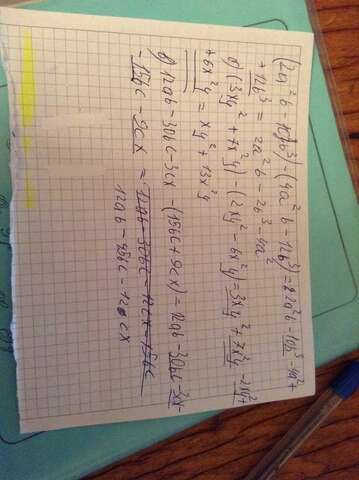 (2a²b - 10b³) - (4a²b - 12b³) = 2a²b - 10b³ - 4a² +
+ 12b³ = 2a²b - 2b³ - 4a²
б) (3xy² + 7x²y) - (2xy² - 6x²y) = 3xy² + 7x²y - 2xy² +
+ 6x²y = xy² + 13x²y
в) 12ab - 30bc - 3cx - (15bc + 9cx) = 12ab - 30bc - 3x -
- 15bc - 9cx = 12ab - 30bc - 12cx - 15bc
12ab - 45bc - 12cx